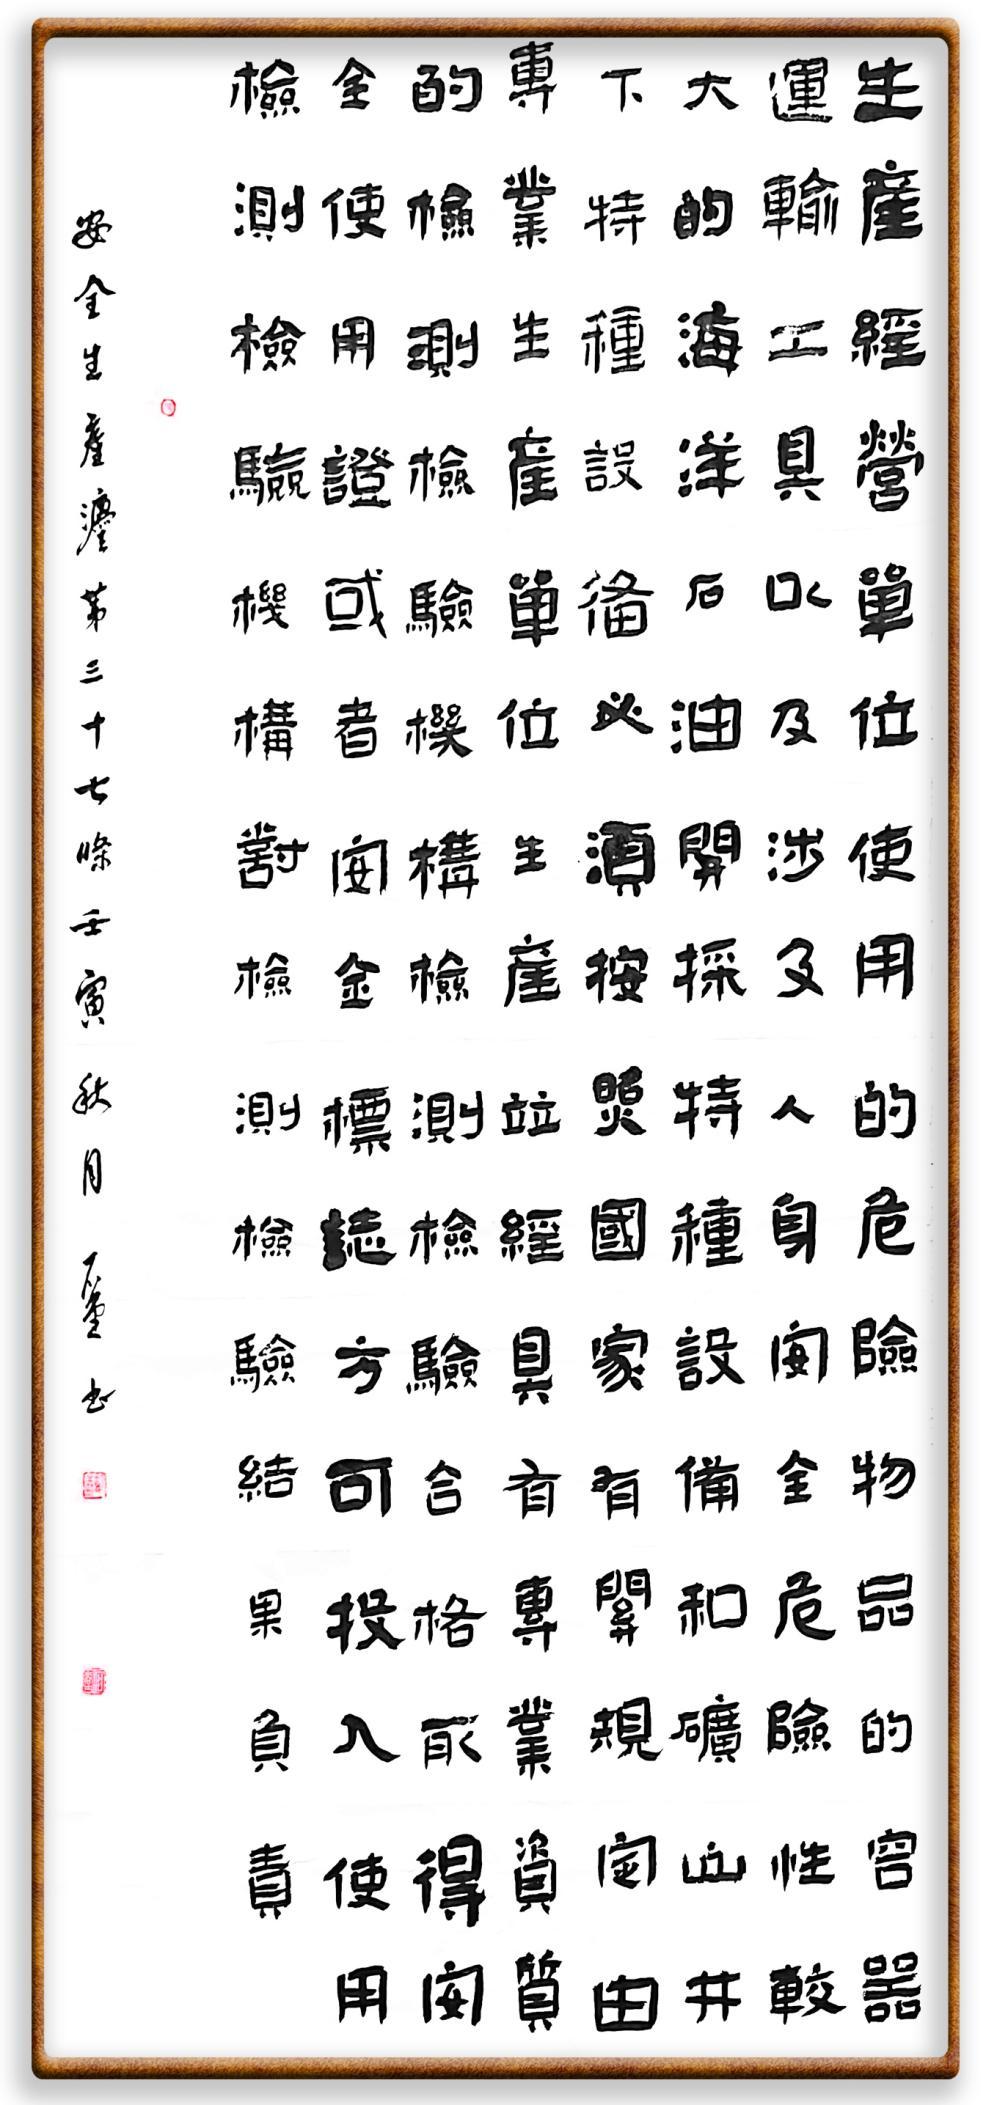 生產經營單位使用的危險物品的容器
運輸工具以及涉及人身安全危險性較
大的海洋石油開採特種設備和礦山井
下特種設備必湏按照國家有關規定由
專業生產單位生產並經具有專業資質
的檢測檢驗機構檢測檢驗合格取得安
全使用證或者安金標誌方可投入使用
檢測檢驗機構對檢測檢驗結果負責
安全生產灋第三十七條壬寅秋月書